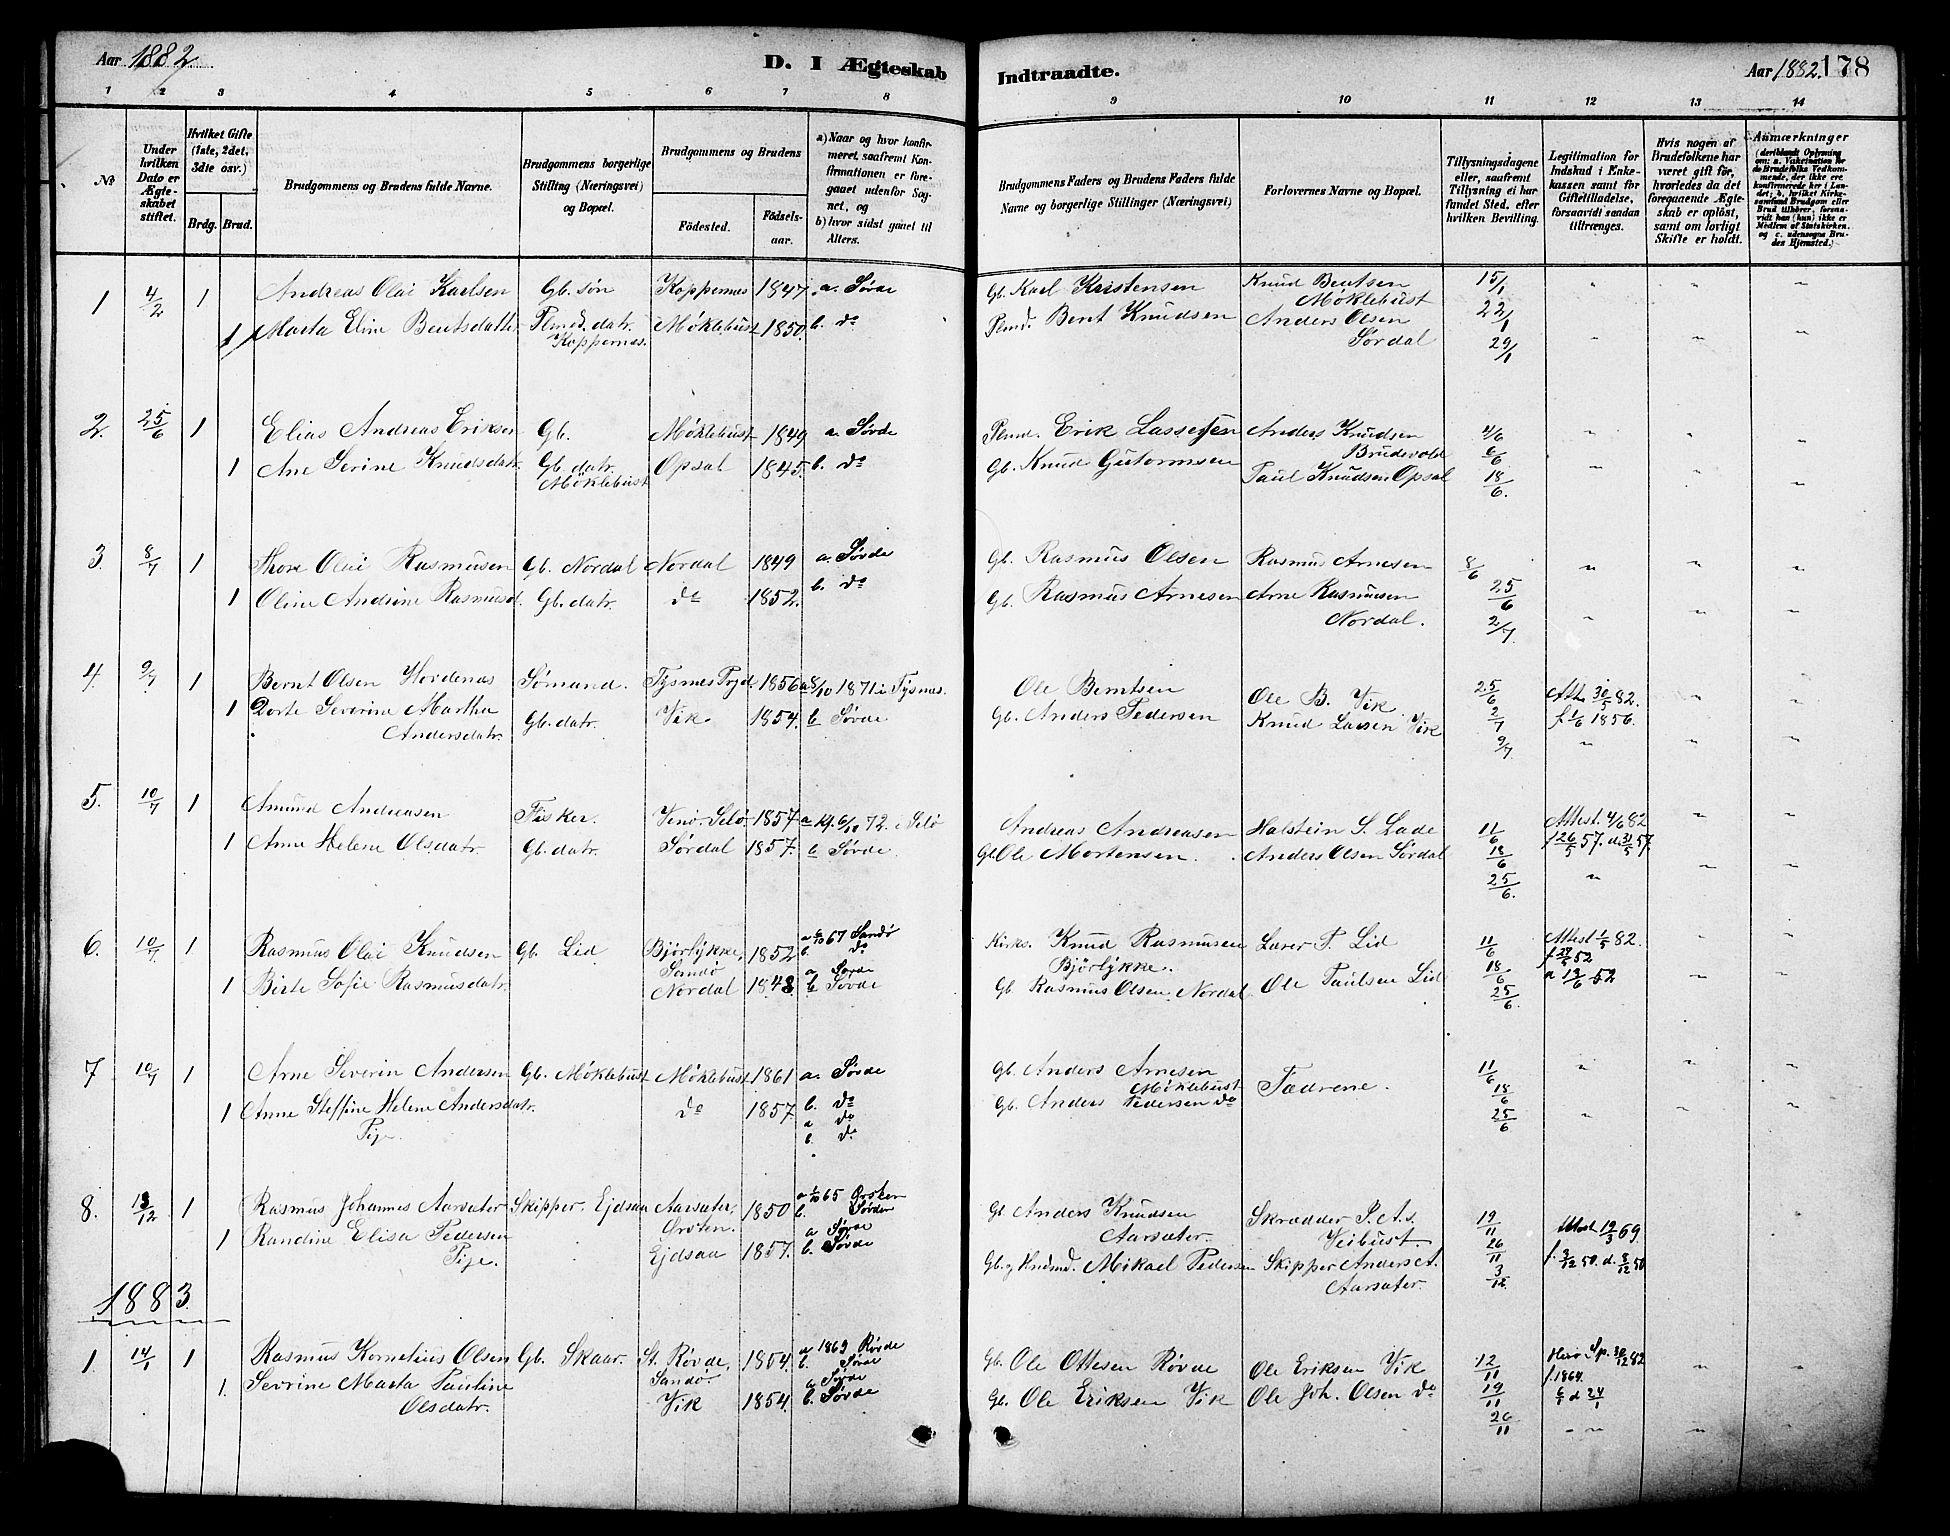 Aar 1882
D. I Ægteskab
Indtraadte.
Aar 1882. 178
1 2 3 4 5 6 7 8 9 10 11 12 13 14
No
Under hvilken Dato er Ægteskabet stiftet.
Hvilket Gifte (1ste, 2det, 3die osv.)
Brdg. Brud.
Brudgommens og Brudens fulde Navne.
Brudgommens borgerlige Stilling (Næringsvei) og Bopæl.
Brudgommens og Brudens
Fødested. Fødselsaar.
a) Naar og hvor konfirmeret, saafremt Konfirmationen er foregaaet udenfor Sognet, og
b) hvor sidst ganet til Alters.
Brudgommens Faders og Brudens Faders fulde Navne og borgerlige Stillinger (Næringsvei)
Forlovernes Navne og Bopæl.
Tillysningsdagene eller, saafremt Tillysning ei har fundet Sted, efter hvilken Bevilling.
Legitimation for Indskud i Enkekassen samt for Giftetilladelse, forsaavidt saadan tiltrænges.
Hvis nogen af Brudefolkene har været gift før, hvorledes da det foregaaende Ægteskab er opløst, samt om lovligt Skifte er holdt.
Anmærkninger
1 4/2 1 Andreas Olai Karlsen Gb. søn Koppernes 1847. a. Sørde Gb. Karl Kristensen Knud Bentsen 15/1 " " "
Møklebust
1 Marta Eline Bentsdatter Plmd. datr. Møklebust 1850. b. do Plmd. Bernt Knudsen Anders Olsen 22/1
Koppernes. Sørdal 29/1 " " "
2. 25/6 1 Elias Andreas Eriksen Gb. Møklebust 1849 a. Sørde Plmd. Erik Lassesen Anders Knudsen 4/6 " " "
Brudevold 6/6
1 Ane Serine Knudsdatr. Gb. datr. Opsal 1845. b. do Gb. Knud Gutormsen Paul Knudsen Opsal 18/6. " " "
Møklebust
3. 8/7 1 Thore Olai Rasmusen Gb. Nordal Nordal 1849 a. Sørde Gb. Rasmus Olsen Rasmus Arnesen 8/6 " " "
1 Oline Andrine Rasmusd. Gb. datr. do 1852. b. do Gb. Rasmus Arnesen Arne Rasmusen 25/6
Nordal. 2/7. " " "
4. 9/7 1 Bernt Olsen Hordenas Sømand. Tysnes Prgd. 1856 a 8/10 1871 i Tysnes. Ole Berntsen Ole B. Vik 25/6 Att. 30/5 82. " "
1 Dorte Severine Martha Gb. datr. Vik 1854. b Sørde Gb. Anders Pedersen Knud Larsen Vik 2/7 f. 1/6 1856.
Andersdatr. 9/7 " " "
5. 10/7 1 Amund Andreasen Fisker. 1857 Andreas Andreasen Halstein S. Lade 11/6 Attest. 4/6 82 "
1 Anne Helene Olsdatr. Gb. datr. Sørdal 1857. b Sørde. Gb. Ole Mortensen. Anders Olsen Sørdal 18/6 f 26/5 57. d. 31/5 57.
25/6. " " "
6. 10/7 1 Rasmus Olai Knudsen Gb. Lid Bjørlykke, 1852 67 Sandø Kirks. Knud Rasmusen Laver P. Lid 11/6 Attest 1/5 82. " "
Sandø b. do Bjørlykke. 52
1 Birte Sofie Rasmusdatr. Nordal 1848 a Sørde Gb. Rasmus Olsen Nordal Ole Paulsen Lid 18/6 52 " "
b Sørde 25/6.
7 10/7 1 Arne Severin Andersen Gb. Møklebust Møklebust 1861 a. Sørde Gb. Anders Arnesen Fædrene. 11/6 " " "
b. do Møklebust 18/6
1 Anne Steffine Helene Andersdatr. do 1857 a do Gb. Anders Pedersen do 25/6 " " "
Pige. b. do
8. 13/12 1 Rasmus Johannes Aarsæter Skipper. Ejdsaa Aarsæter, 1850 65 Ørsten Gb Anders Knudsen Skrædder P. A. s. 19/11
Ørsten. b. Sørde Aarsæter. Veibust. 26/11 Attest 69.
1 Randine Elisa Pedersen Ejdsaa 1857. a Sørde Gb. Mikael Pedersen Skipper Anders A. 3/12 50. d. 50
Pige. b. Sørde Aarsæter.
1883.
1. 14/1 1 Rasmus Kornelius Olsen Gb. Skaar. St. Røvde, 1854. a 1869 Røvde Gb. Ole Ottesen Røvde Ole Eriksen Vik 12/11 30/12 82 " "
Sandø. b. Sørde f. 1864.
1. Sevrine Marta Pauline Vik 1854. a Sørde Gb. Ole Eriksen Vik Ole Joh. Olsen do 19/11
Olsdatr. b. Sørde 26/11 " " " "